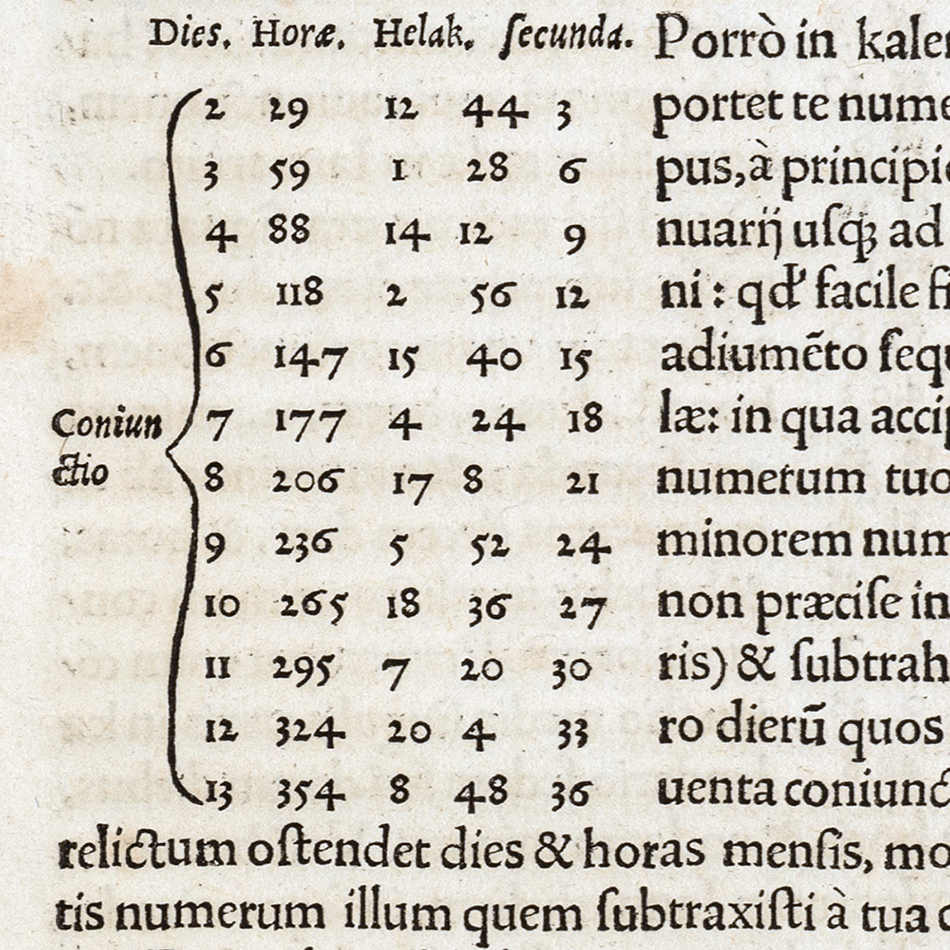 Dies. Horæ. Helak. ſecunda. Porrò in kalen
2 29 12 44 3 portet te nume
3 59 1 28 6 pus, à principio
4 88 14 12 9 nuarĳ uſqꝫ ad
5 118 2 56 12 ni : qđ facile fi
6 147 15 40 15 adiumẽto ſequ
Coniun 7 177 4 24 18 læ: in qua accip
ctio 8 206 17 8 21 numerum tuo
9 236 5 52 24 minorem num
10 265 18 36 27 non præciſe in
11 295 7 20 30 ris) & ſubtrah
12 324 20 4 33 ro dierũ quos
13 354 8 48 36 uenta coniunc
relictum oſtendet dies & horas menſis, mo
tis numerum illum quem ſubtraxiſti à tua